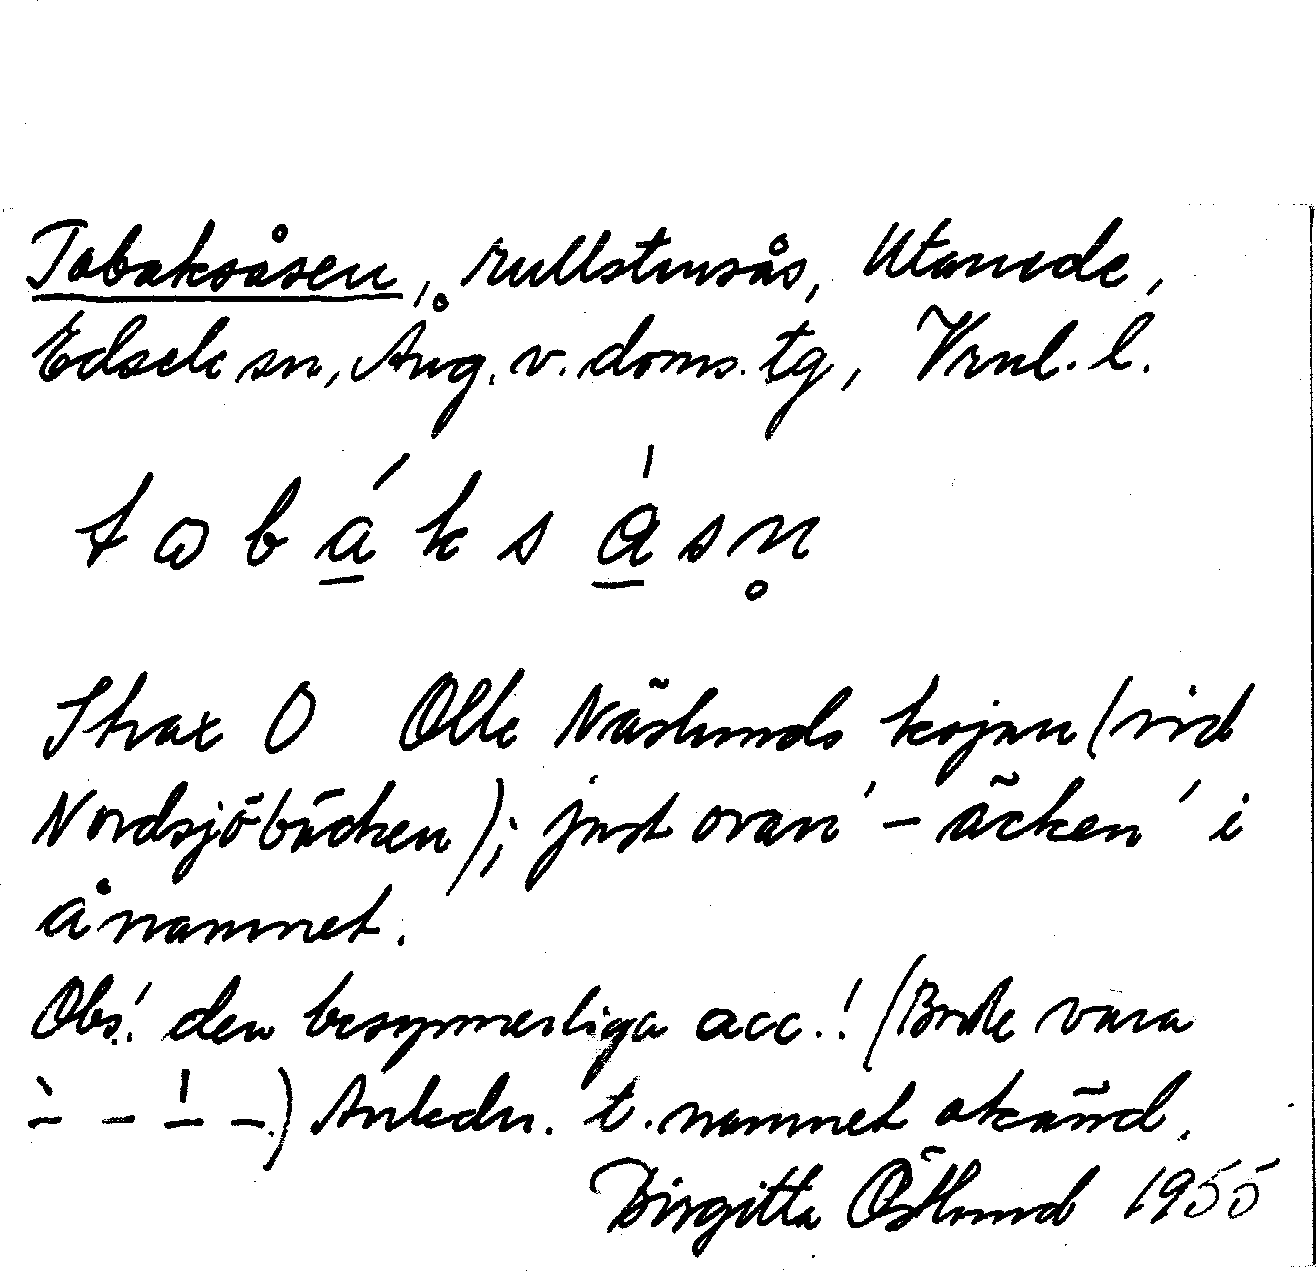 Tobaksåsen, rullstensås, Utanede,
Edsele sn, Ång. v. doms. tg, Vrnl. l.
t ω b á k s a̍ s n̥
Strax O Olle Näslunds kojan (vid
Nordsjöbäcken); just ovan '-äcken' i
ånamnet.
Obs! den besynnerliga acc.! (Borde vara
ˋ– – ˈ– –) Anledn. t. namnet okänd.
Birgitta Östlund 1955